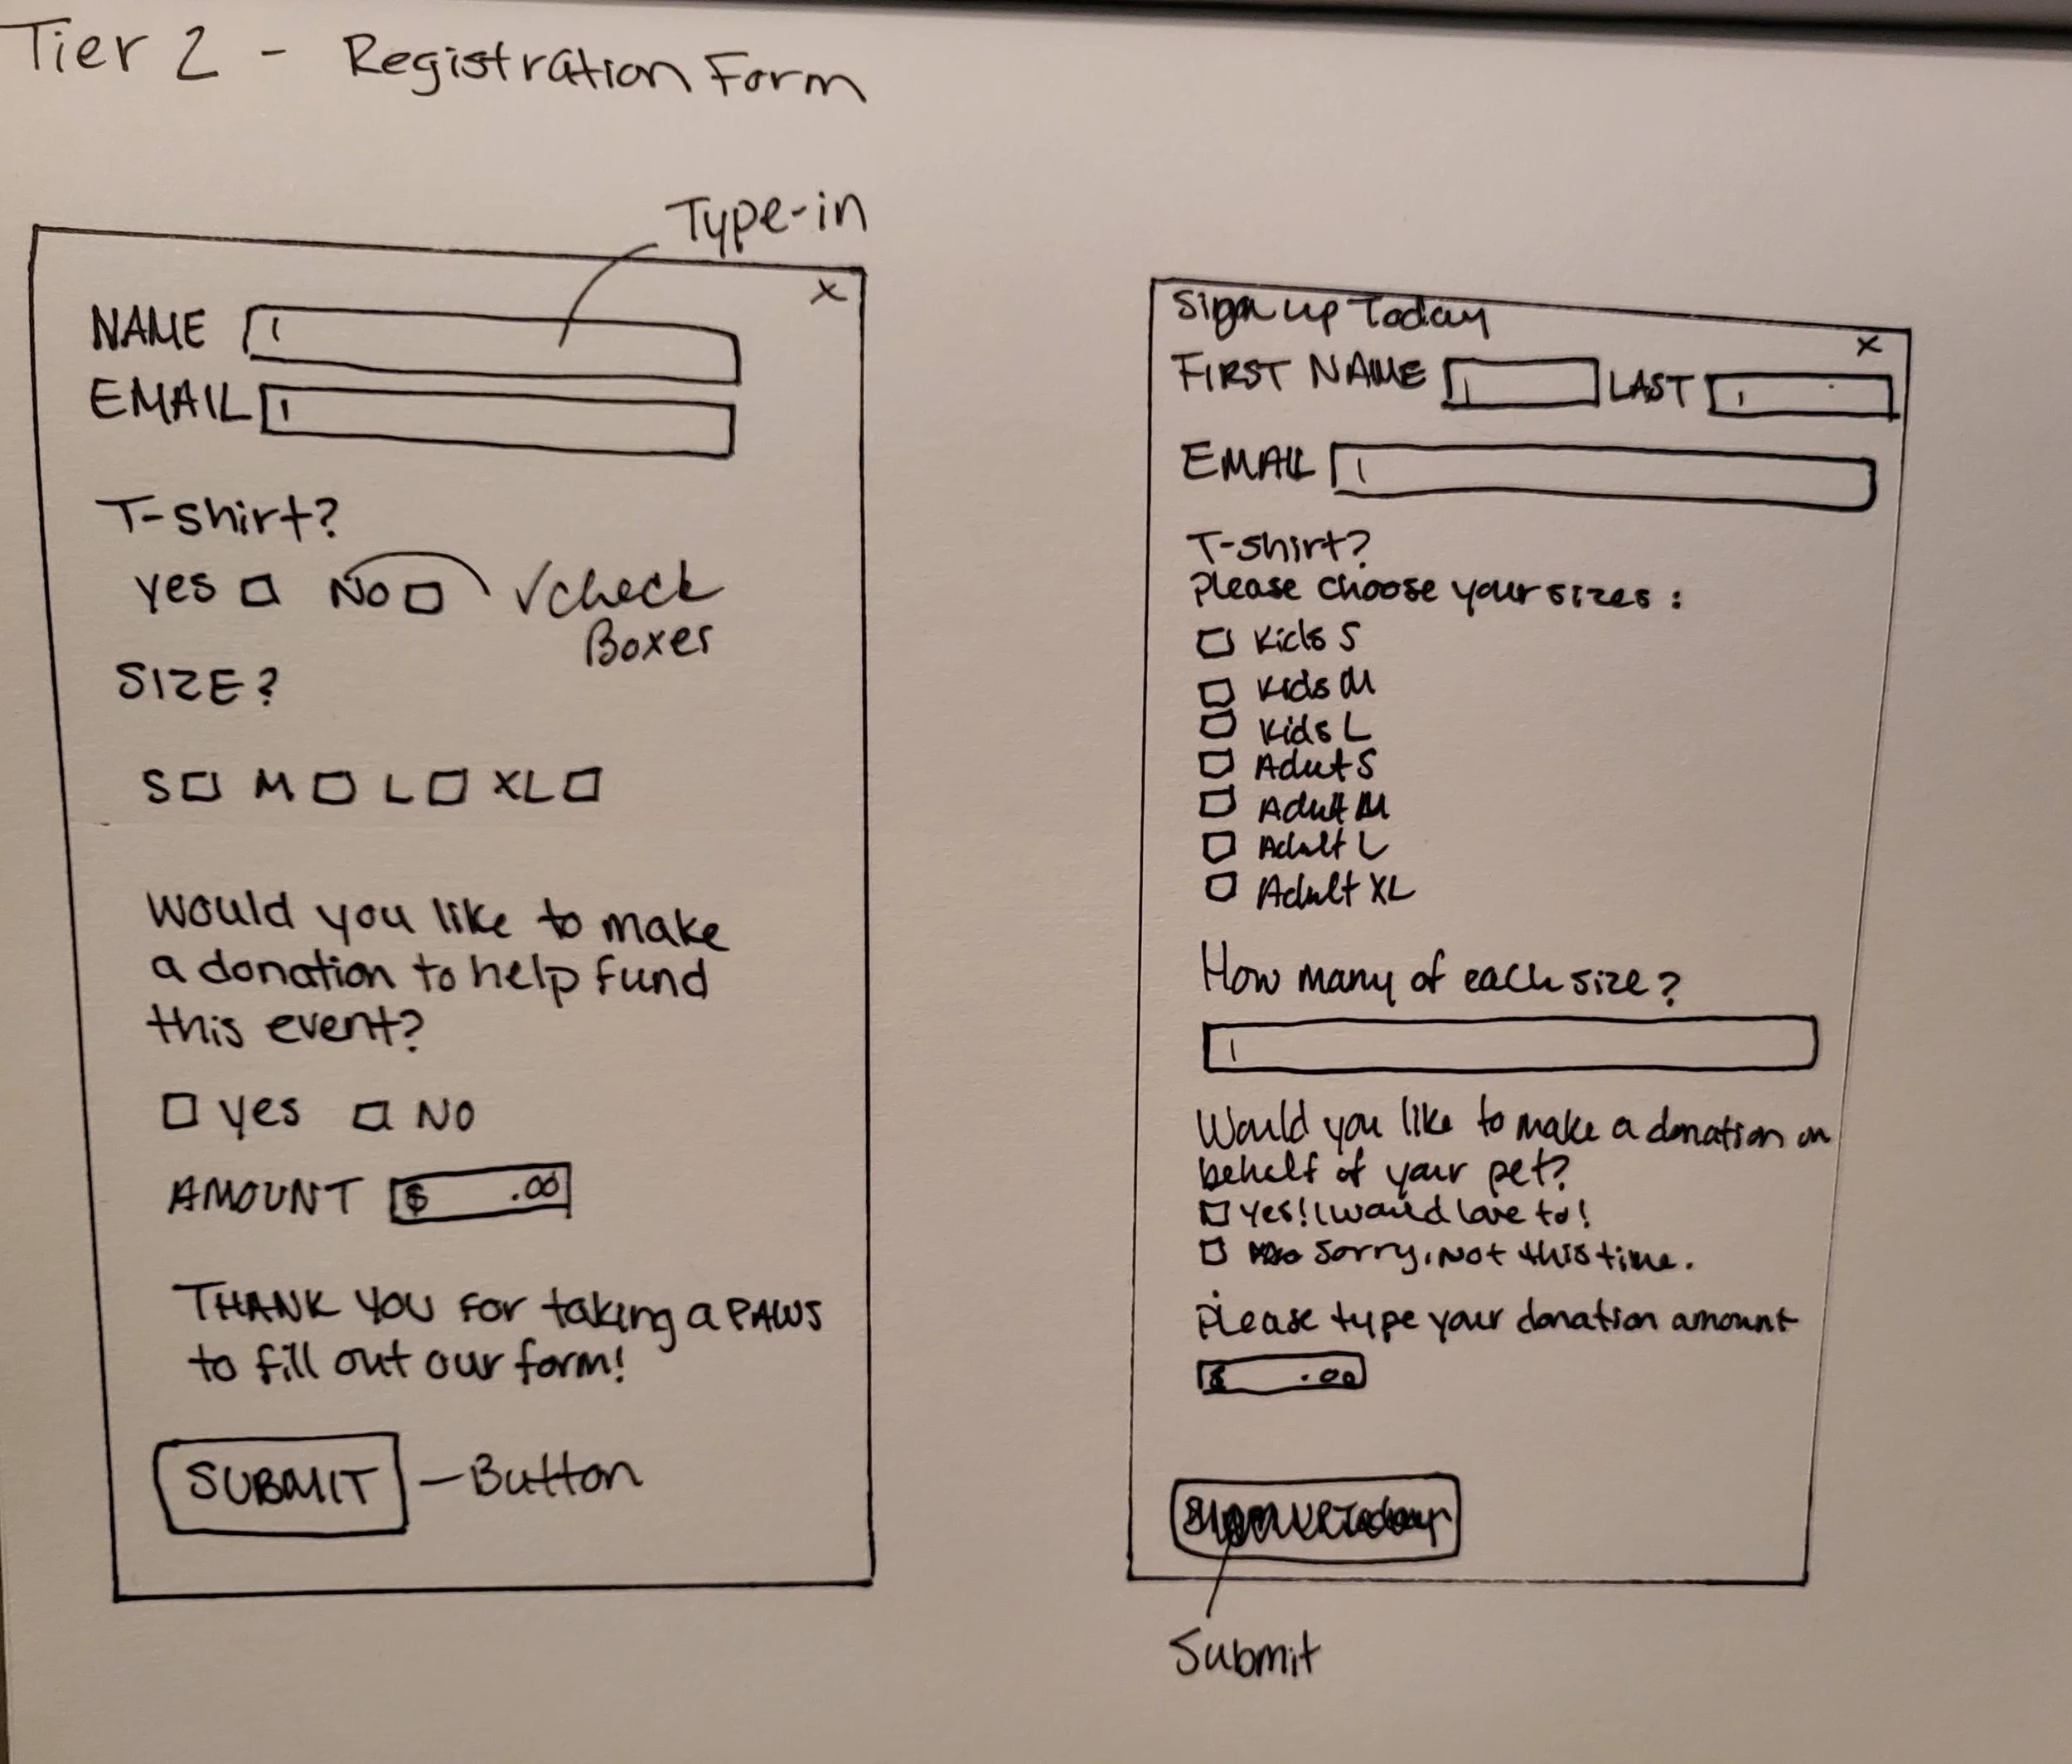 Tier 2 - Registration Form
Type-in
X
NAME
EMAIL
T-shirt?
yes No ✓check
Boxes
SIZE?
S M L XL
Would you like to make
a donation to help fund
this event?
yes NO
AMOUNT $ .00
THANK YOU for taking a PAWS
to fill out our form!
SUBMIT - Button
Sign up Today
X
FIRST NAME LAST
EMAIL
T-shirt?
Please choose your sizes:
Kids S
Kids M
Kids L
Adut S
Adult M
Adult L
Adult XL
How many of each size?
Would you like to make a donation on
behalf of your pet?
Yes! I would love to!
Sorry, Not this time.
Please type your donation amount
$ .00
Sign up Today
Submit